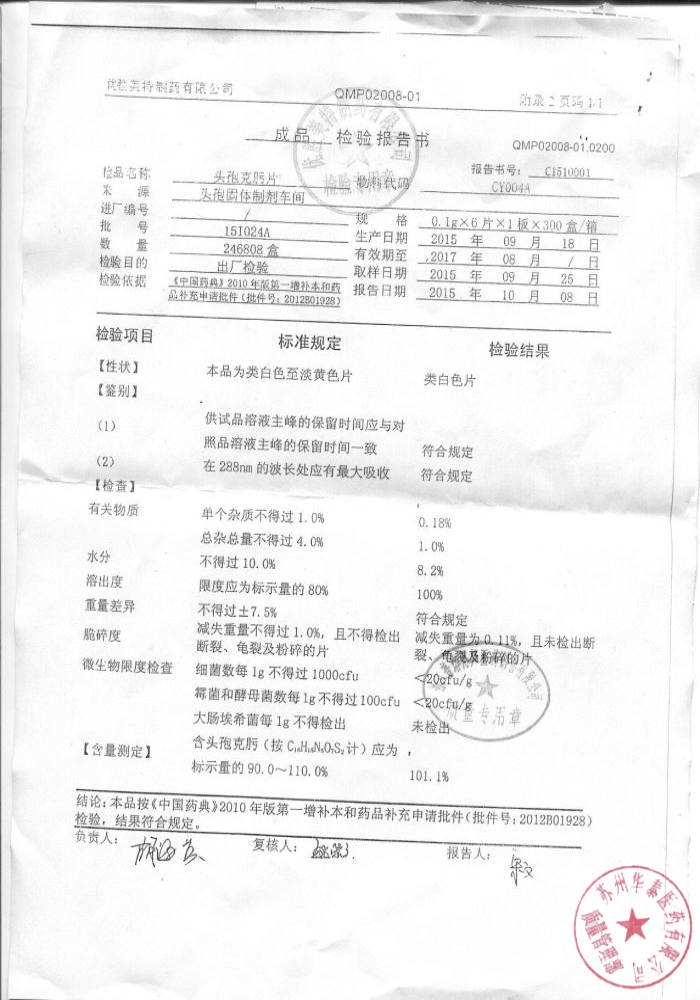 优胜美特制药有限公司 QMP02008-01 附录 2 页码 1/1
成品 检验报告书
QMP02008-01.0200
检品名称 头孢克肟片 物料代码 CY004A
报告书号： C1510001
来源 头孢固体制剂车间
进厂编号 / 规格 0.1g×6 片×1 板×300 盒/箱
批号 15I024A 生产日期 2015 年 09 月 18 日
数量 246808 盒 有效期至 2017 年 08 月 / 日
检验目的 出厂检验 取样日期 2015 年 09 月 25 日
检验依据 《中国药典》2010 年版第一增补本和药 报告日期 2015 年 10 月 08 日
品补充申请批件（批件号：2012B01928）
检验项目 标准规定 检验结果
【性状】 本品为类白色至淡黄色片 类白色片
【鉴别】
（1） 供试品溶液主峰的保留时间应与对
照品溶液主峰的保留时间一致 符合规定
（2） 在 288nm 的波长处应有最大吸收 符合规定
【检查】
有关物质 单个杂质不得过 1.0% 0.18%
总杂总量不得过 4.0% 1.0%
水分 不得过 10.0% 8.2%
溶出度 限度应为标示量的 80% 100%
重量差异 不得过±7.5% 符合规定
脆碎度 减失重量不得过 1.0%，且不得检出 减失重量为 0.11%，且未检出断
断裂、龟裂及粉碎的片 裂、龟裂及粉碎的片
微生物限度检查 细菌数每 1g 不得过 1000cfu <20cfu/g
霉菌和酵母菌数每 1g 不得过 100cfu <20cfu/g
大肠埃希菌每 1g 不得检出 未检出
【含量测定】 含头孢克肟（按 C₁₆H₁₅N₅O₇S₂ 计）应为
标示量的 90.0～110.0% 101.1%
结论：本品按《中国药典》2010 年版第一增补本和药品补充申请批件（批件号：2012B01928）
检验，结果符合规定。
负责人： 复核人： 报告人：
检验专用章
质量专用章
苏州华泰医药有限公司
质量管理部